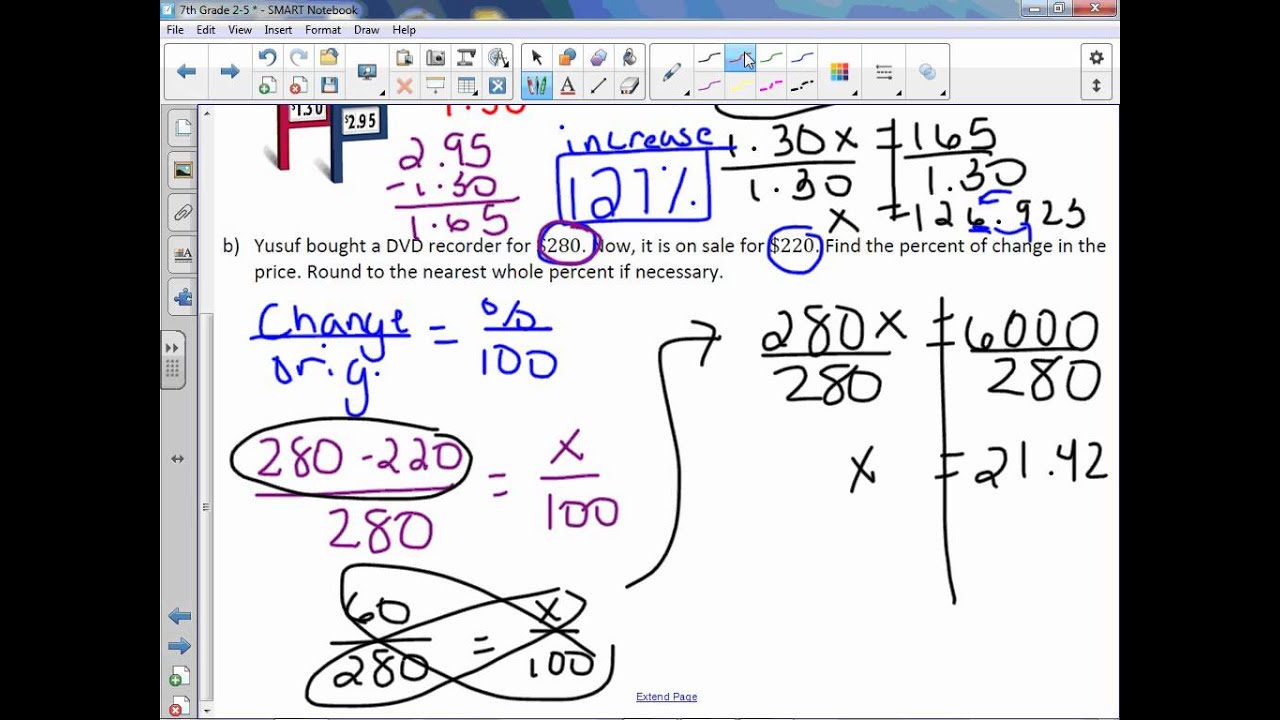 7th Grade 2-5 * - SMART Notebook
File Edit View Insert Format Draw Help
$1.30
$2.95
1.30
2.95
-1.30
1.65
increase
127%
1.30x = 165
1.30 1.30
x = 126.923
b) Yusuf bought a DVD recorder for $280. Now, it is on sale for $220. Find the percent of change in the
price. Round to the nearest whole percent if necessary.
Change = %
orig. 100
280 - 220 = x
280 100
60 = x
280 100
280x = 6000
280 280
x = 21.42
Extend Page